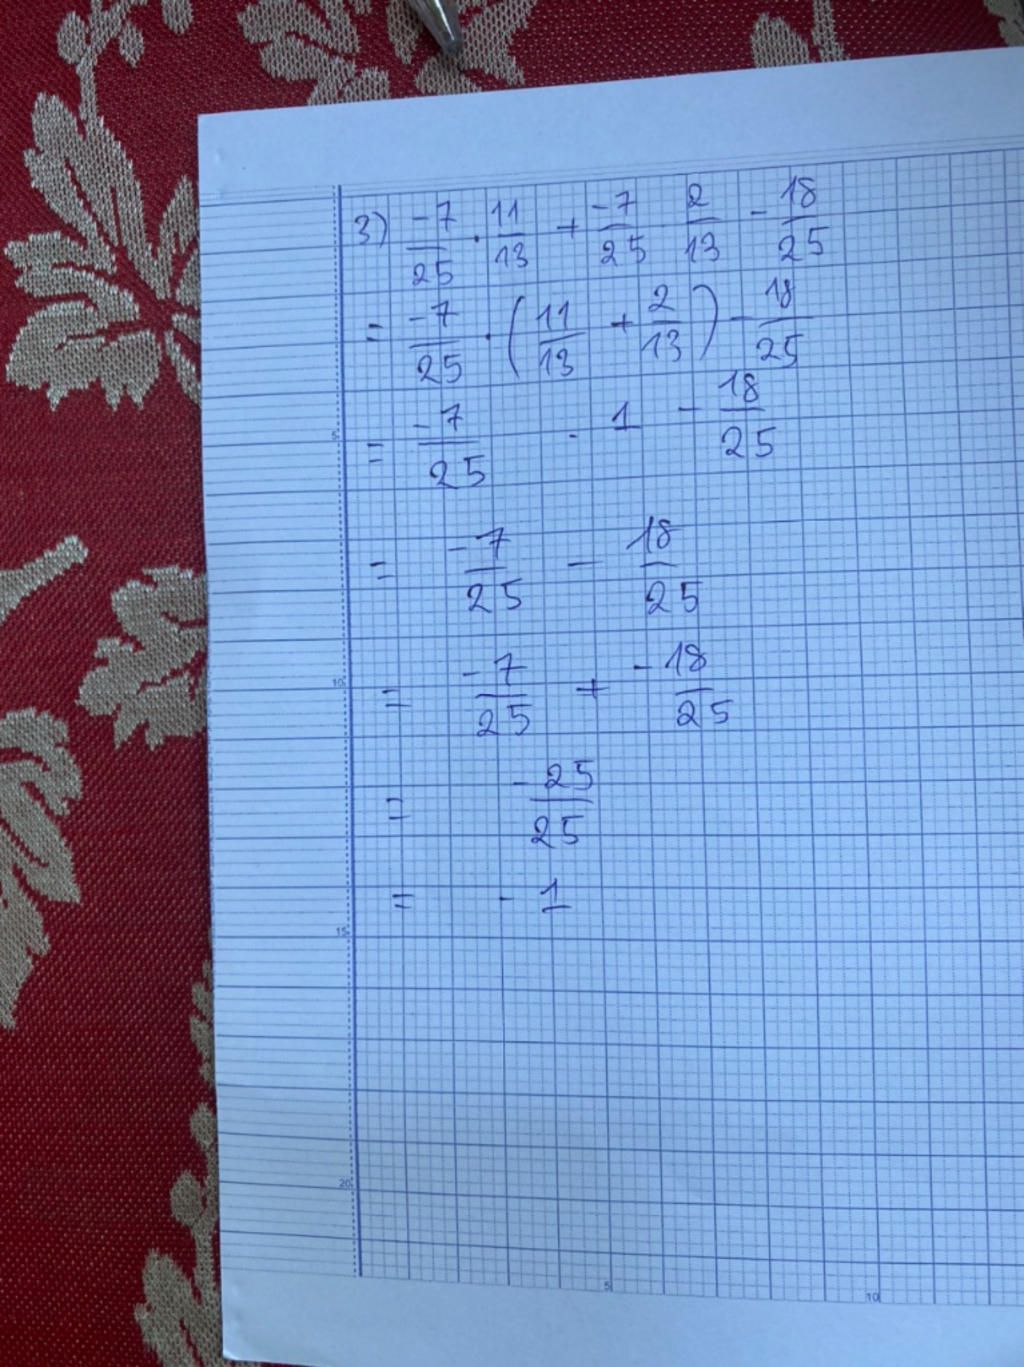 3) -7/25 . 11/13 + -7/25 2/13 - 18/25
= -7/25 . (11/13 + 2/13) - 18/25
= -7/25 . 1 - 18/25
5
= -7/25 - 18/25
= -7/25 + -18/25
10
= -25/25
= -1
15
20
5 10